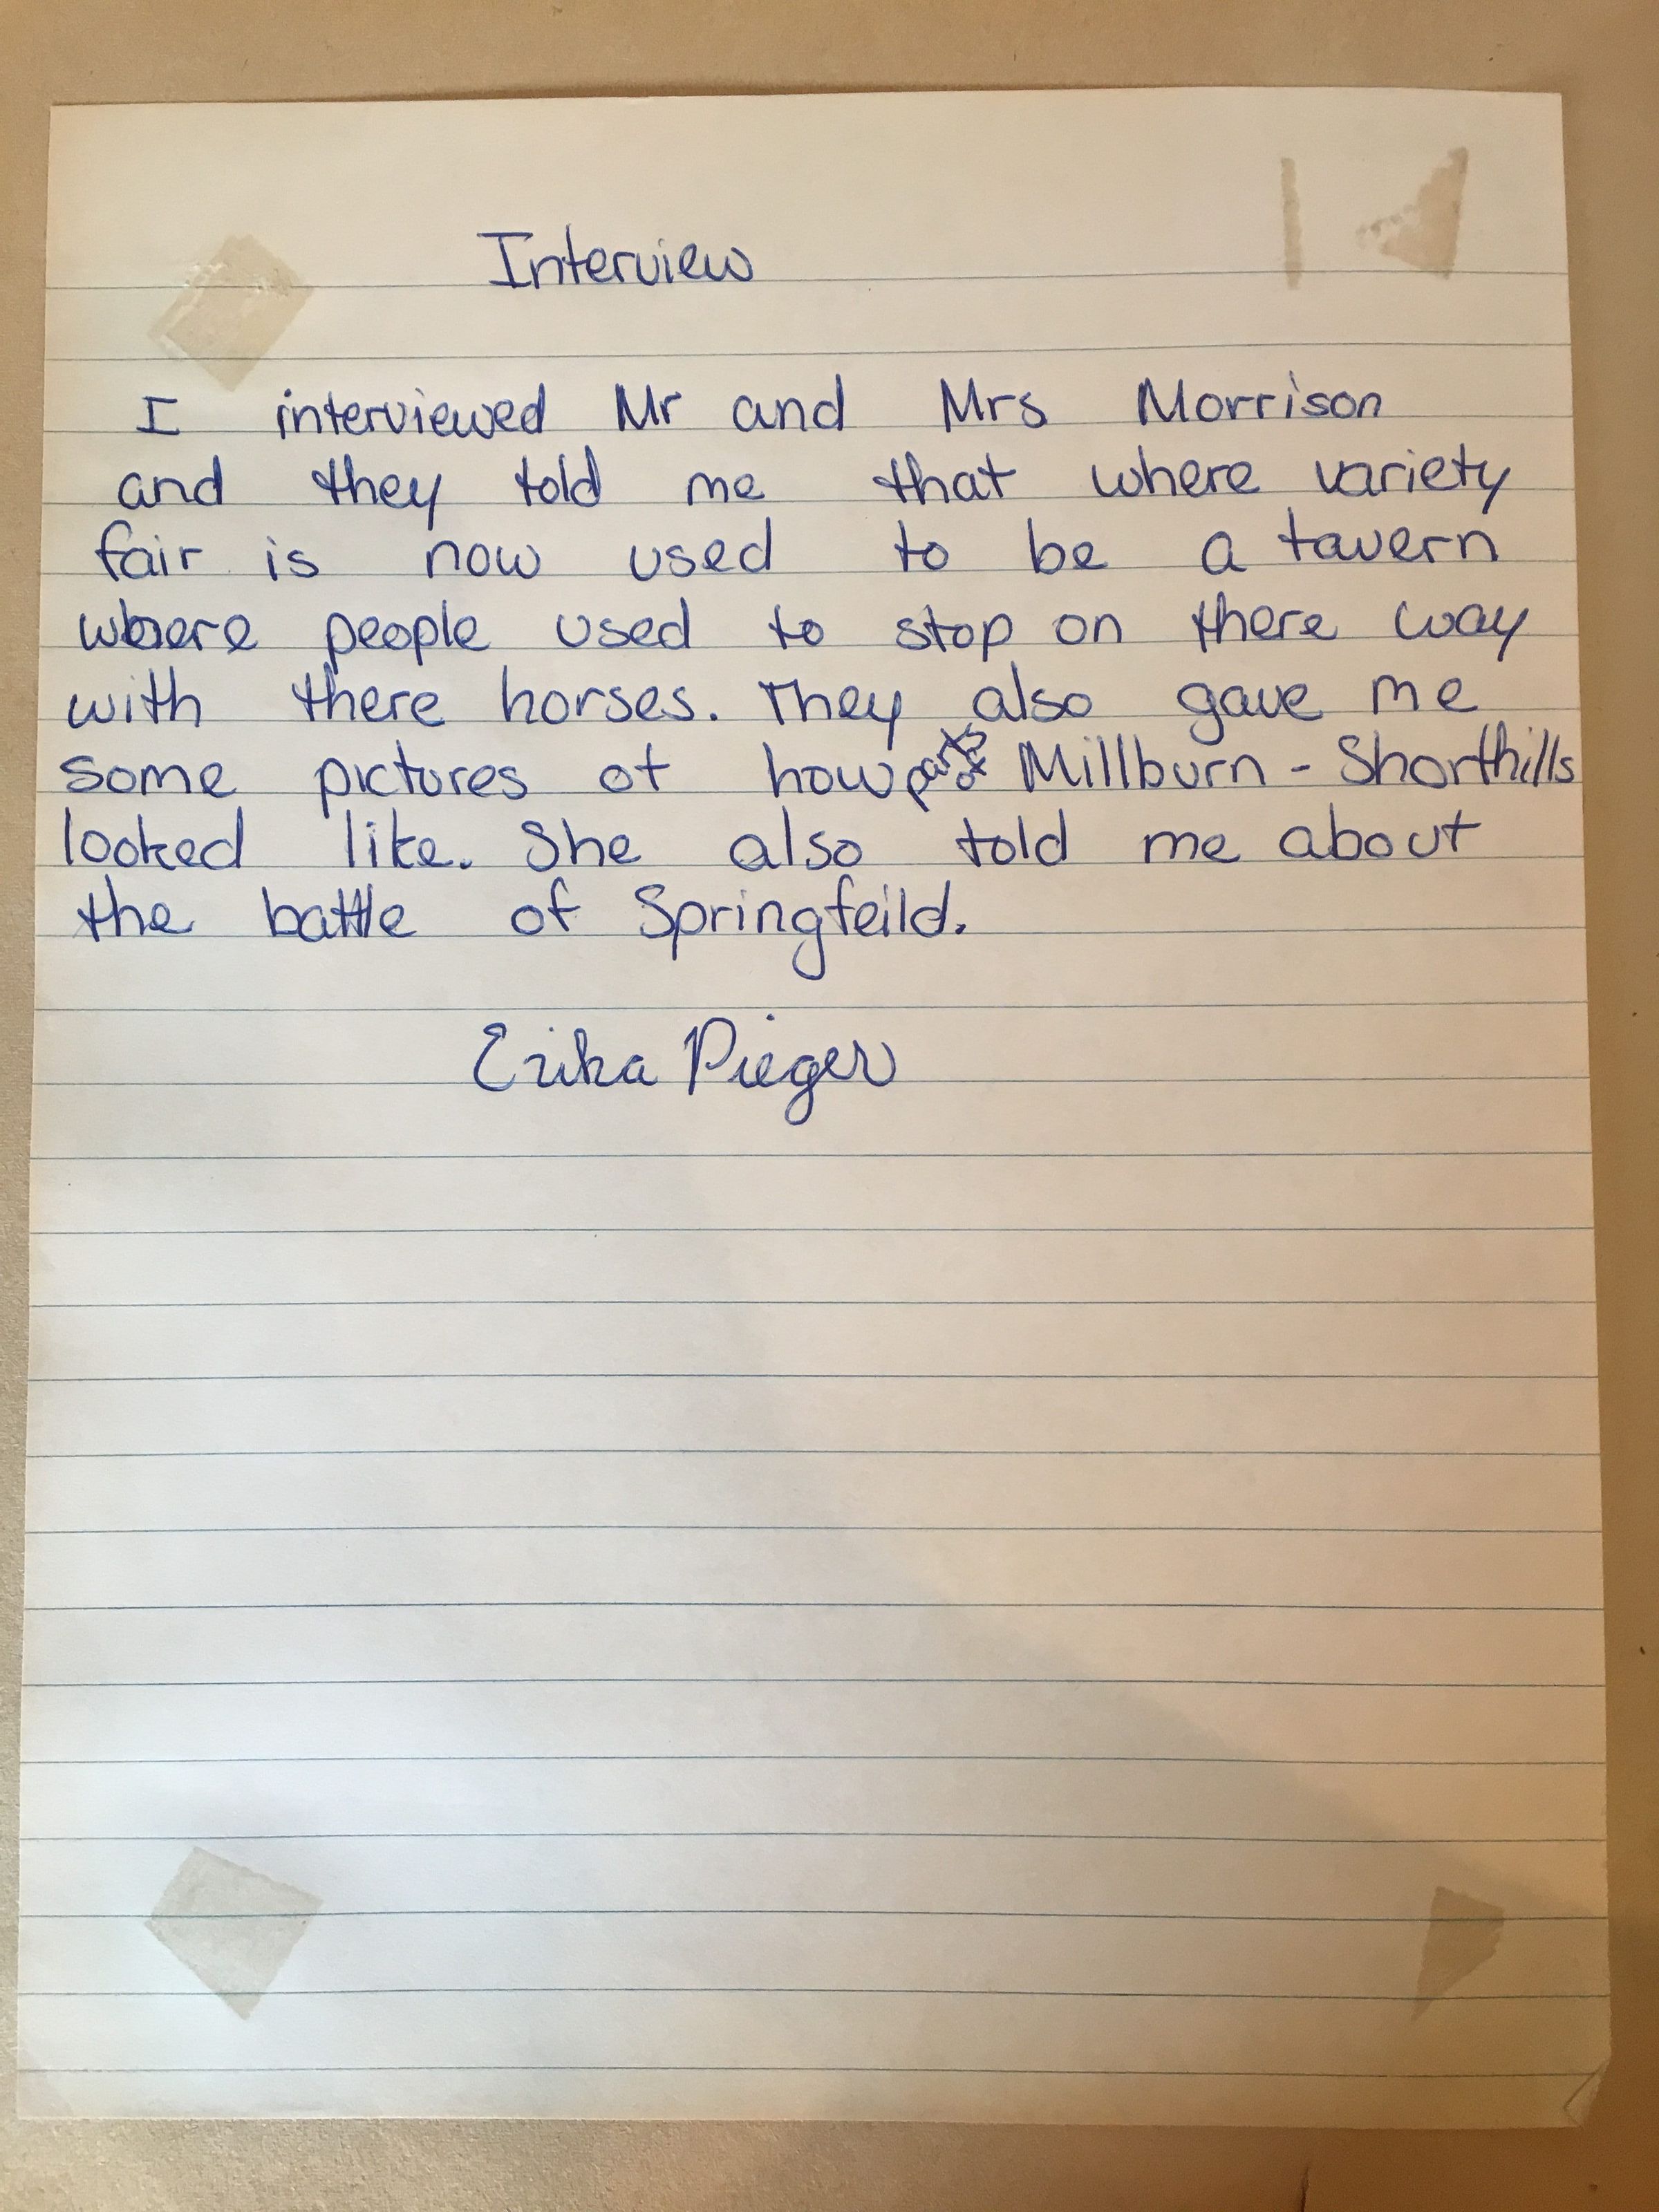 Interview
I interviewed Mr and Mrs Morrison
and they told me that where variety
fair is now used to be a tavern
where people used to stop on there way
with there horses. They also gave me
some pictures of how parts of Millburn - Shorthills
looked like. She also told me about
the battle of Springfeild.
Erika Pieger